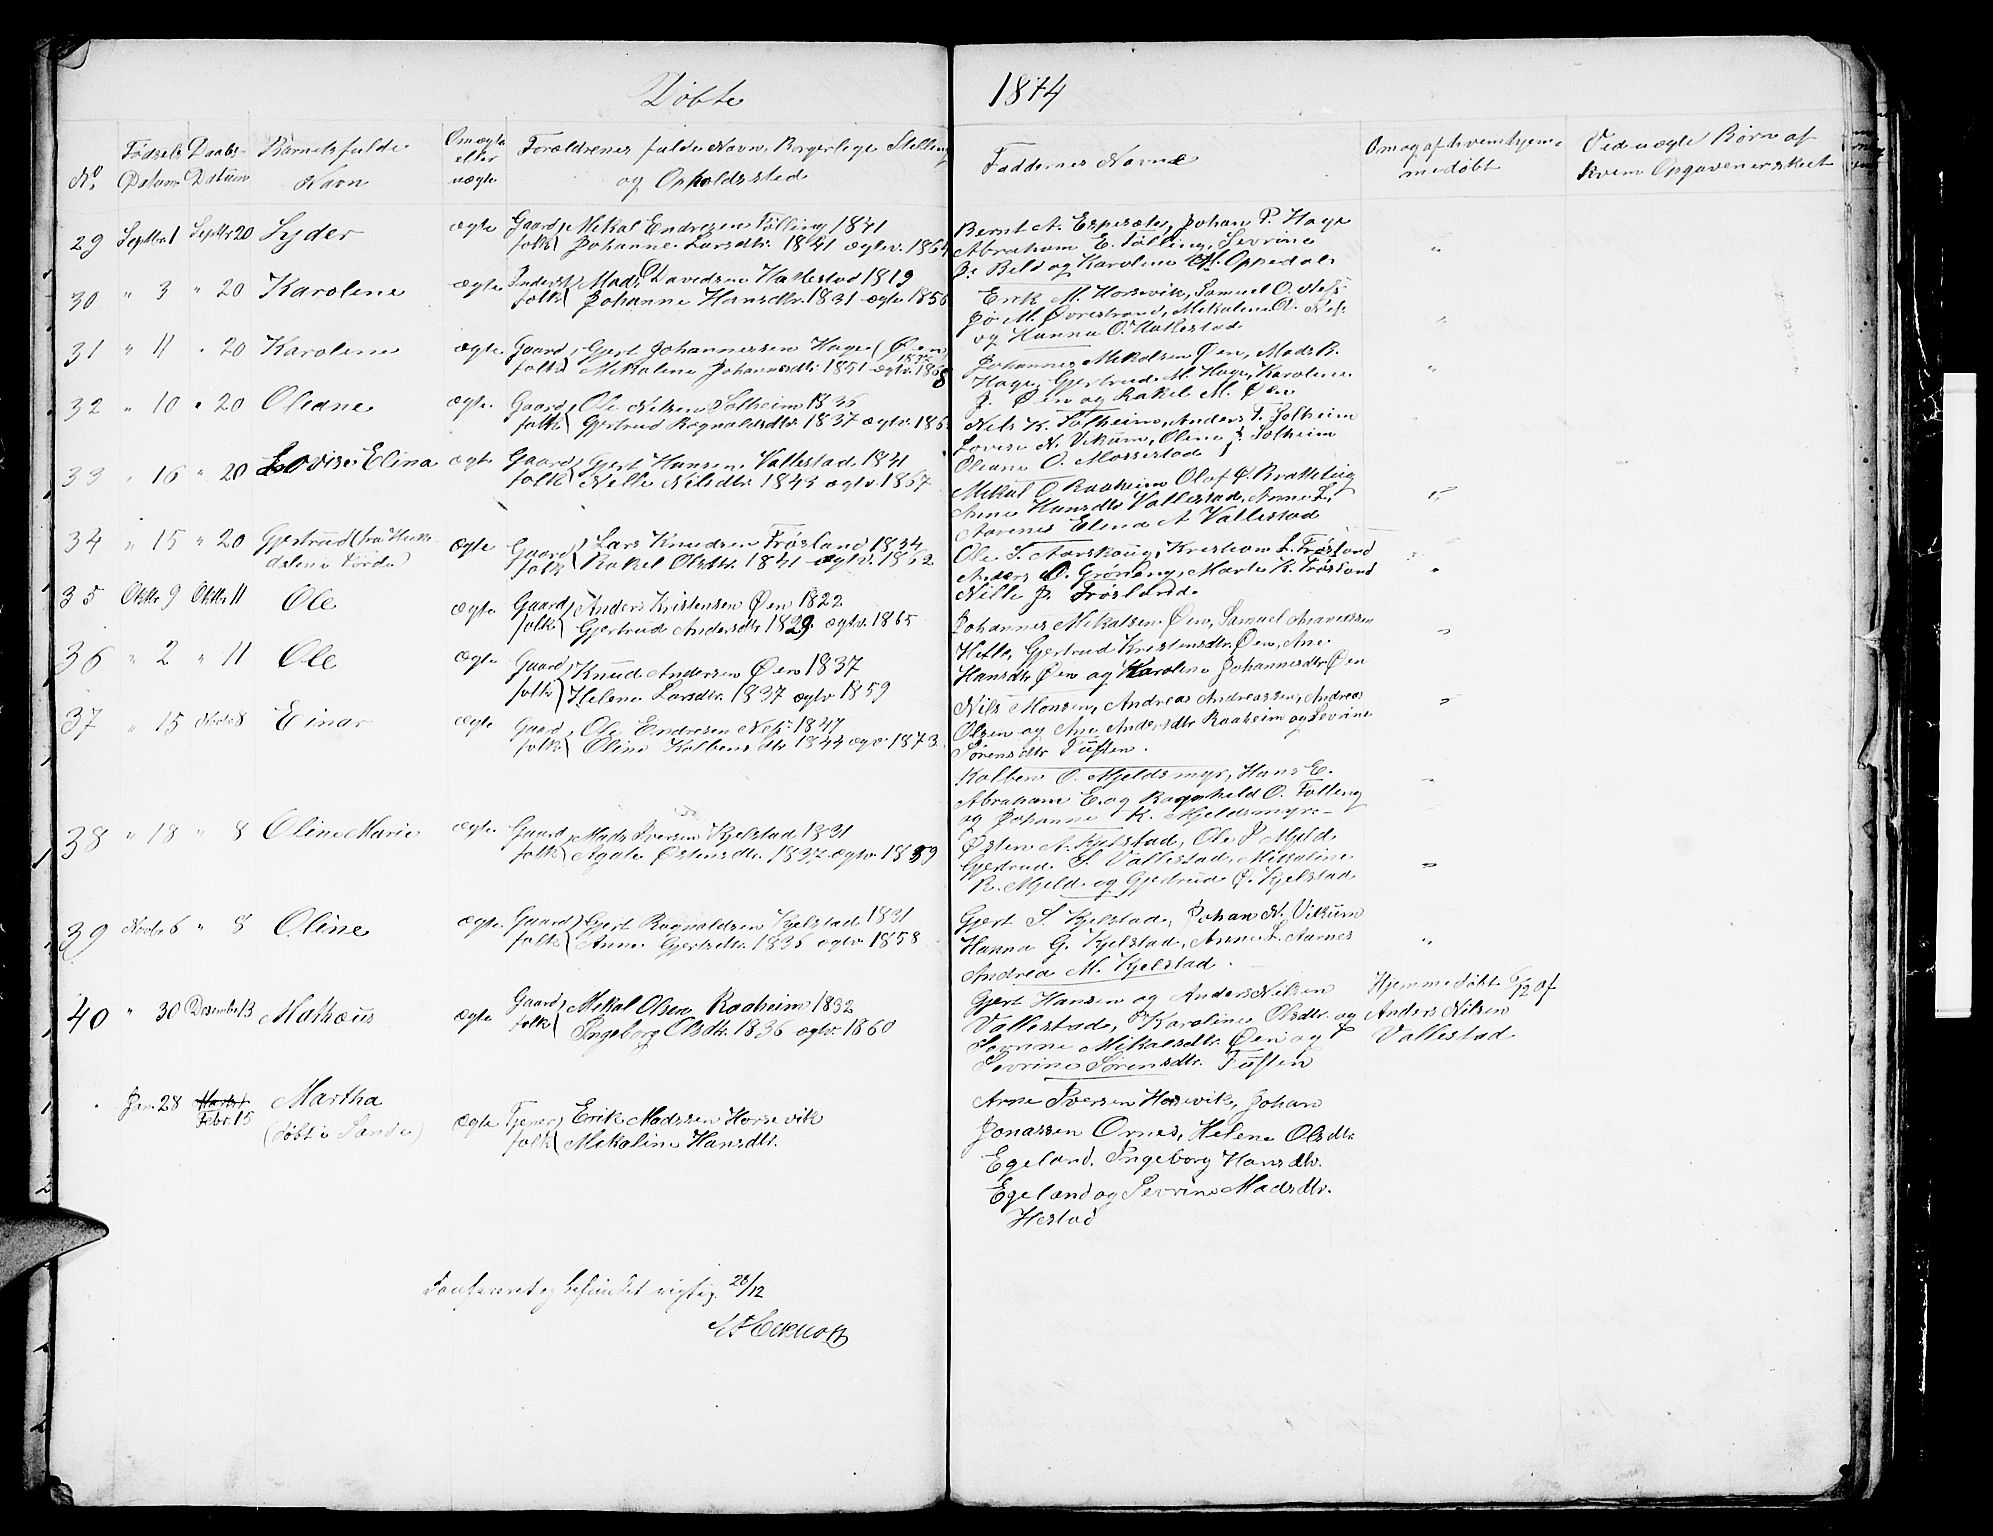 Døbte 1874
No. Fødsels Datum Daabs Datum Barnets fulde Navn Om ægte eller uægte Forældrenes fulde Navn, Borgerlige Stilling og Opholdssted Faddernes Navne Om og af hvem hjemmedøbt Ved uægte Børn af hvem Opgaven er skeet
29 Septbr. 1 Septbr 20 Syder ægte Gaardfolk Mikal Endresen Tølling 1841
Johanne Larsdtr. 1841 ægtev. 1864
Bernt A. Espesæte, Johan P. Hage
Abraham E. Tølling, Sevrine
og Karoline M. Oppedal "
30 " 3 " 20 Karoline ægte Inderstfolk Mads Davidsen Hallestad 1819
Johanne Hansdtr. 1831 ægtv 1856
Erik M. Horsevik, Samuel O. Næss
M. Øvrestrand, Mikaline O. Næs
og Hanna O. Hallestad "
31 " 11 " 20 Karoline ægte Gaardfolk Gjert Johannessen Hage (Øen) 1842
Mikaline Johannesdtr. 1851 ægtv. 1868
Johannes Mikalsen Øen, Mads R.
Hage, Gjertrud M. Hage, Karoline
J. Øen og Rakel M. Øen "
32 " 10 " 20 Oleane ægte Gaardfolk Ole Nilsen Solheim 1835
Gjertrud Ragnaldsdtr. 1837 ægtv. 186
Nils K. Solheim, Anders T. Solheim
Lovise N. Vikum, Oline J. Solheim
Oleane O. Mossestad
33 " 16 " 20 Lovise Elina ægte Gaardfolk Gjert Hansen Vallestad 1841
Nille Nilsdtr. 1843 ægtv. 1867
Mikal O. Raaheim Olof O. Brattteig
Anne Hansdtr Vallestad, Anne L.
Aarnes Elena A Vallestad "
34 " 15 " 20 Gjertrud (fra
dalen i Førde) ægte Gaardfolk Lars Knudsen Frøsland 1834
Rakel Olsdtr. 1841 ægtv. 1862
Ole S. Aarskoug, Kristian L. Frøsland
Anders O. Grøneng, Marte K. Frøsland
Nille J. Frøsland "
35 Oktbr 9 Oktbr 11 Ole ægte Gaardfolk Anders Kristensen Øen 1822
Gjertrud Andersdtr 1829 ægtv. 1865
Johannes Mikalsen Øen, Samuel
Helle, Gjertrud Kristensdtr. Øen, Ane
Hansdtr. Øen og Karoline Johannesdtr Øen "
36 " 2 " 11 Ole ægte Gaardfolk Knud Andersen Øen 1837
Helene Larsdtr. 1837 ægtv 1859
Nils Monsen, Andreas Andreassen, Andreas
Olsen og Ane Andersdtr Raaheim og Sevrine
Sørensdtr Tuften. "
37 " 15 Novbr 8 Einar ægte Gaardfolk Ole Endresen Næs 1847
Oline Kolbensdtr 1844 ægv 1873.
Kolben O. Mjeldsmyr, Hans E.
Abraham E. og Ragnhild O. Tølling
og Johanne K. Mjeldsmyr "
38 " 18 " 8 Oline Marie ægte Gaardfolk Mads Iversen Kjelstad 1831
Agate Østensdtr. 1837 ægtv. 1859
Østen A. Kjelstad, Ole I Mjeld
Gjertrud S. Vallestad, Mikaline
R. Mjeld og Gjertrud Ø. Kjelstad "
39 Novbr 6 " 8 Oline ægte Gaardfolk Gjert Ragnaldsen Kjelstad 1831
Anne Gjertsdtr. 1836 ægtv. 1858
Gjert S. Kjelstad, Johan N. Vikum
Hanna G. Kjelstad, Anne L. Aarnes
Andrea M. Kjelstad. "
40 " 30 December 13 Mathæus ægte Gaardfolk Mikal Olsen Raaheim 1832
Ingeborg Olsdtr. 1836 ægtv. 1860
Gjert Hansen og Anders Nilsen
Vallestad, Karoline Olsdtr. og
Sevrine Mikalsdtr. Øen og
Sevrine Sørensdtr. Tuften
Hjemmedøbt 6/12 af
Anders Nilsen
Vallestad
Jan. 28 Febr. 15 Martha
(døbt i Sande) ægte Tjenerfolk Erik Madssen Horsevik
Mikaline Hansdtr.
Arne Iversen Horsevik, Johan
Jonassen Ornes, Helene Olsdtr.
Egeland, Ingeborg Hansdtr.
Egeland og Sevrine Madsdtr.
Hestad
Confereret og befundet rigtig. 28/12